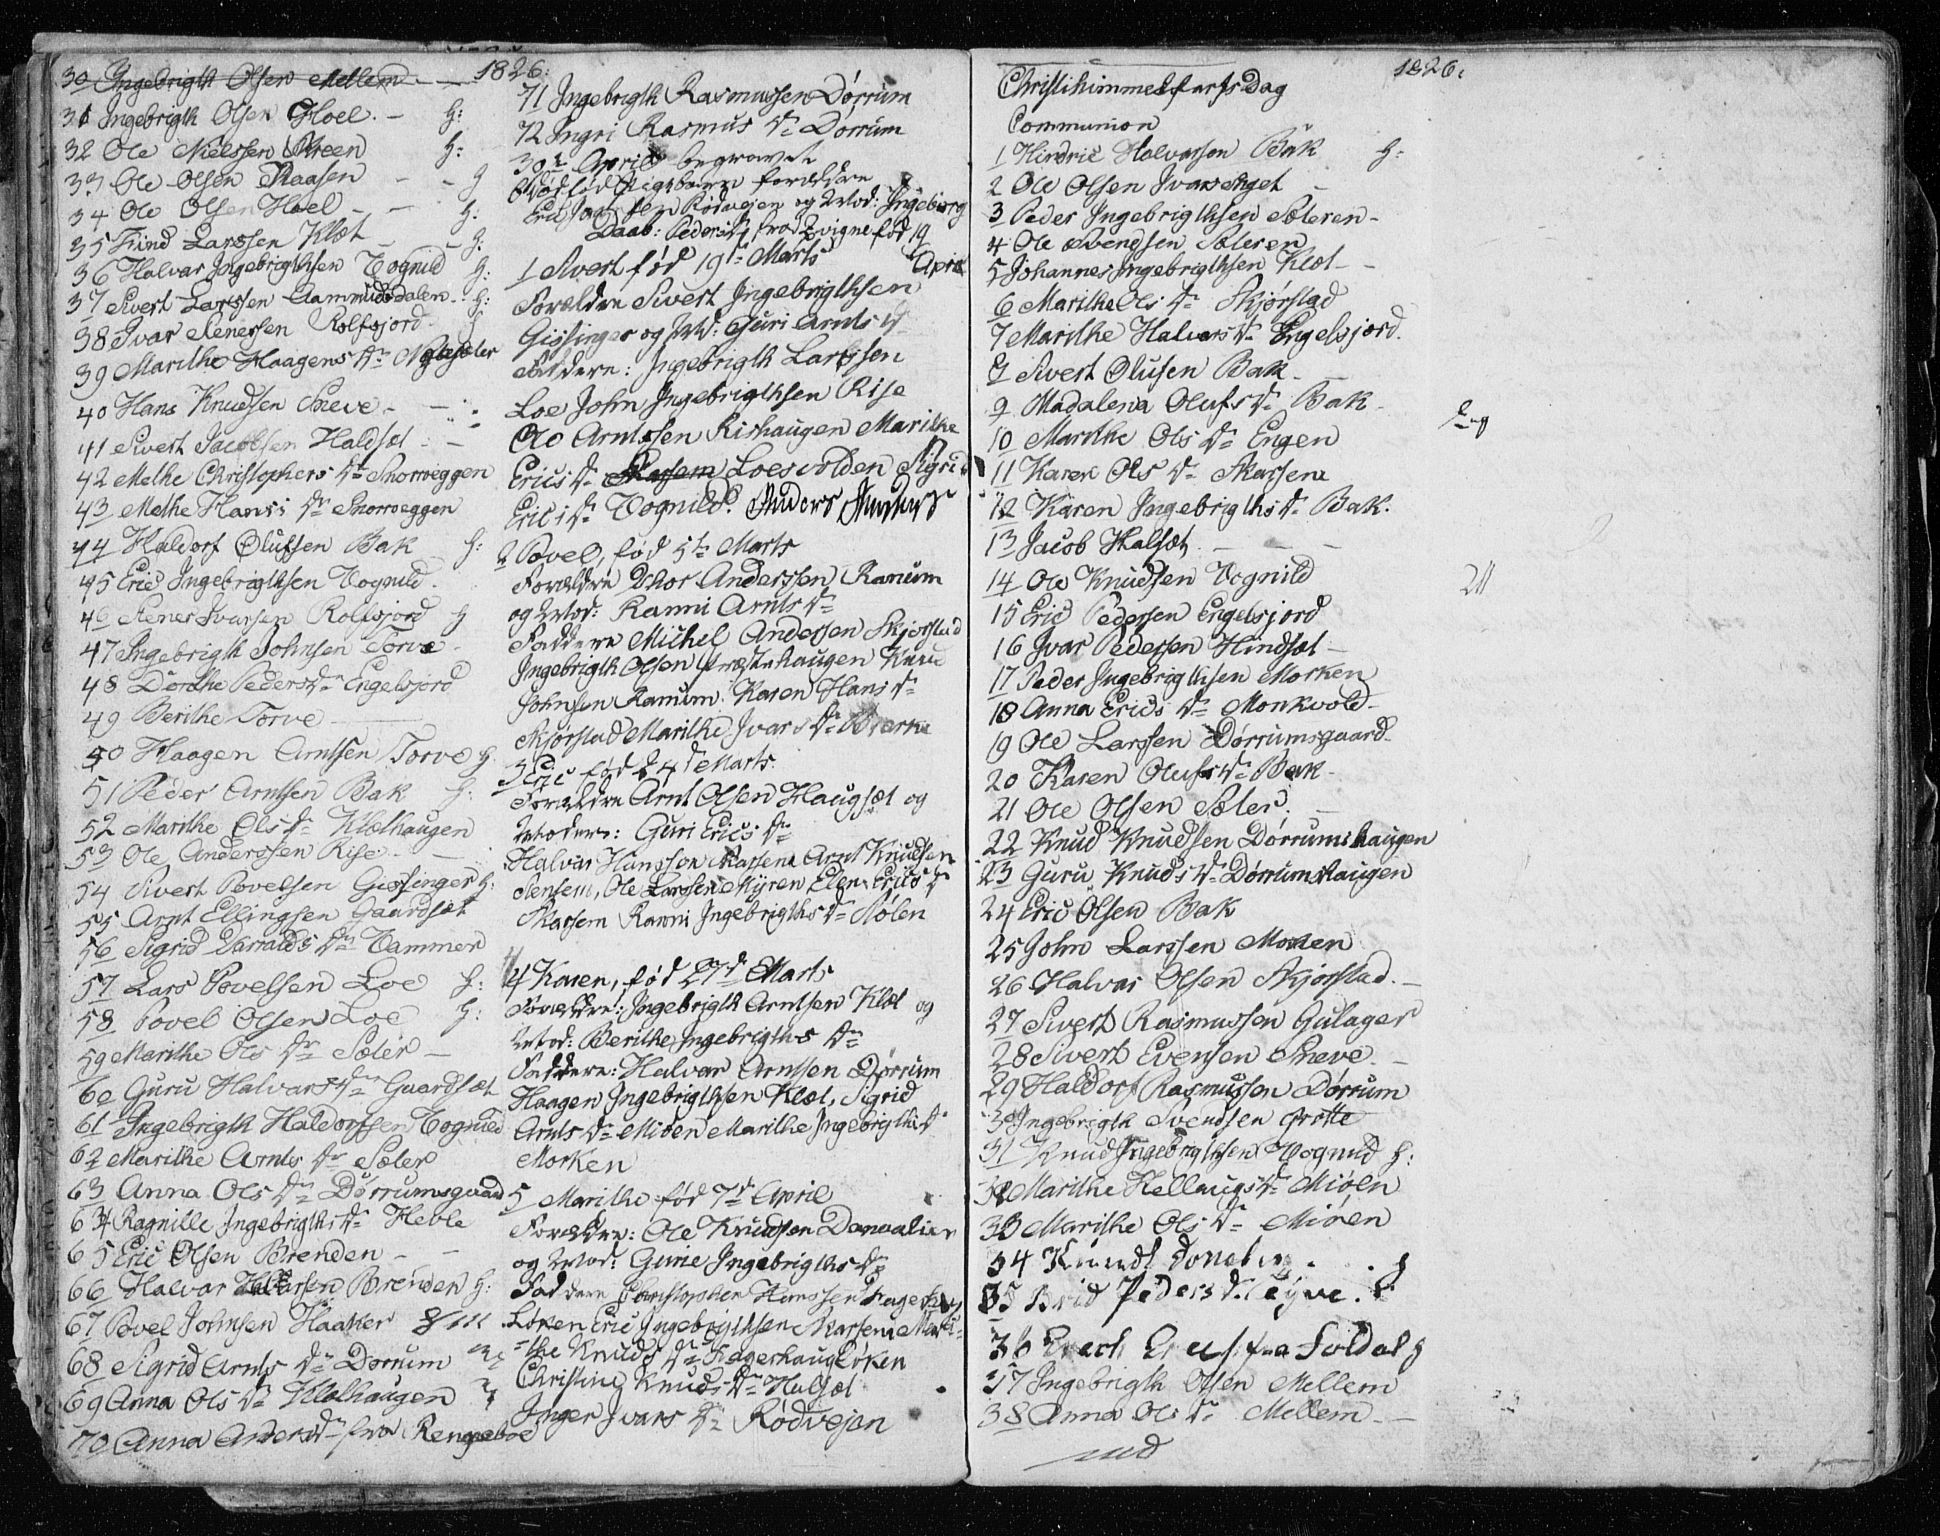 1826:
30 Ingebrigth Olsen Mellem
31 Ingebrigth Olsen Hoel. - h:
32 Ole Nielssen Kreen h:
33 Ole Olsen Skaasen - - g
34 Ole Olsen Hoel - - h:
35 Find Larssen Klæt - - g.
36 Halvar Ingebrigthsen Vognild h:
37 Sivert Larssen Aammundsdalen - h:
38 Ivar Renerssen Rolfsjord
39 Marithe Haagens Dr
40 Hans Knudsen Sneve - -
41 Sivert Jacobsen Haldsæt - -
42 Methe Christophers Dr Snorroeggen
43 Methe Hans Dr Snorroeggen
44 Haldorf Olufsen Bak h:
45 Eric Ingebrigthsen Vognild
46 Rener Ivarsen Rolfsjord g
47 Ingebrigth Johnsen Torve
48 Dorthe Peders Dr Engelsjord
49 Berithe Torve
50 Haagen Arntsen Torve h
51 Peder Arntsen Bak h:
52 Marithe Ols Dr Klæthaugen
53 Ole Anderssen Rise
54 Sivert Povelsen Gissinger h:
55 Arnt Ellingsen Gaardsæt
56 Sigrid Dr Vammer
57 Lars Povelsen Loe h:
58 Povel Olsen Loe h:
59 Marithe Ols Dr Sæter
60 Guru Halvars Dr Gaardsæt
61 Ingebrigth Haldorfsen Vognild
62 Marithe Arnts Dr Sæter
63 Anna Ols Dr Dørrumsgaard
64 Ragnille Ingebrigths Dr Hevle
65 Eric Olsen Brenden - -
66 Halvar Brenden h:
67 Povel Johnsen Haaker
68 Sigrid Arnts Dr Dørrum
69 Anna Ols Dr Klæthaugen
70 Anna Anders Dr fra Rengeboe
71 Ingebrigth Rasmussen Dørrum
72 Ingri Rasmus Dr Dørrum
30te April begravet
Dødfød Pigebarn forældre
Eric Rødvejen og Mod: Ingeborg
Peders Dr fra Qvigne fød 19
April
1 Sivert fød 19de Marts
Forældre Sivert Ingebrigthsen
Gissinger og Mod: Guri Arnts Dr
Faddere: Ingebrigth Larssen
Loe John Ingebrigthsen Rise
Ole Arntssen Rishaugen Marithe
Erics Dr Skarsem Loesvolden Sigrid
Erics Dr Vognild. Anders
2 Povel, fød 5te Marts
Forældre Thor Anderssen Ranum
og Mod: Ranni Arnts Dr
Faddere Michel Andersen Skjørstad
Ingebrigth Olsen Præstehaugen Knud
Johnsen Ranum. Karen Hans Dr
Skjørstad Marithe Ivars Dr
3 Eric fød 24d Marts.
Forældre Arnt Olsen Haugsæt og
Moder: Guri Erics Dr
Halvar Hansson Skarsem Arnt Knudsen
Stensem, Ole Larssen Myren Elen Erics Dr
Skarsem Ranni Ingebrigths Dr Stølen
4 Karen, fød 27d Marts
Forældre: Ingebrigth Arntsen Klæt og
Mod: Berithe Ingebrigths Dr
Faddere: Halvar Arntsen Dørrum
Haagen Ingebrigthsen Klæt, Sigrid
Arnts Dr Miøen Marithe Ingebrigths Dr
Morken
5 Marithe fød 7d April
Forældre: Ole Knudsen
og Mod: Gurie Ingebrigths Dr
Faddere Christopher Hanssen
Løken Eric Ingebrigthsen Skarsem Mari-
the Knuds Dr Løken
Christine Knuds Dr Halsæt
Inger Ivars Dr Rødvejen
1826:
Christihimmelfarts Dag
Communion
1 Hindric Halvorsen Bak h:
2 Ole Olsen Ivarsteget -
3 Peder Ingebrigthsen Sæteren -
4 Ole Svendsen Sæteren
5 Johannes Ingebrigthsen Klæt -
6 Marithe Ols Dr Skjørstad
7 Marithe Halvars Dr Engelsjord.
8 Sivert Olufsen Bak -
9 Madalena Olufs Dr Bak -
10 Marithe Ols Dr Engen
11 Karen Ols Dr Skarsem
12 Karen Ingebrigths Dr Bak.
13 Jacob Halsæt - - -
14 Ole Knudsen Vognild
15 Eric Pedersen Engelsjord
16 Ivar Pedersen Hindsæt -
17 Peder Ingebrigthsen Morken
18 Anna Erics Dr Monkvold -
19 Ole Larssen Dørrumsgaard
20 Karen Olufs Dr Bak -
21 Ole Olsen Sæter. -
22 Knud Knudsen Dørrumshaugen
23 Guru Knuds Dr Dørrumshaugen
24 Eric Olsen Bak
25 John Larssen Moken
26 Halvar Olsen Skjørstad. -
27 Sivert Rasmusson Gulager
28 Sivert Evensen Sneve. -
29 Haldorf Rasmusson Dørrum
30 Ingebrigth Svendsen Grøtte
31 Knud Ingebrigthsen Vognild h:
32 Marithe Hellaugs Dr Miøen
33 Marithe Ols Dr Miøen
34 . . g
35 Brid Peders Dr
36 fra Soldal g
37 Ingebrigth Olsen Mellem
38 Anna Ols Dr Mellem -